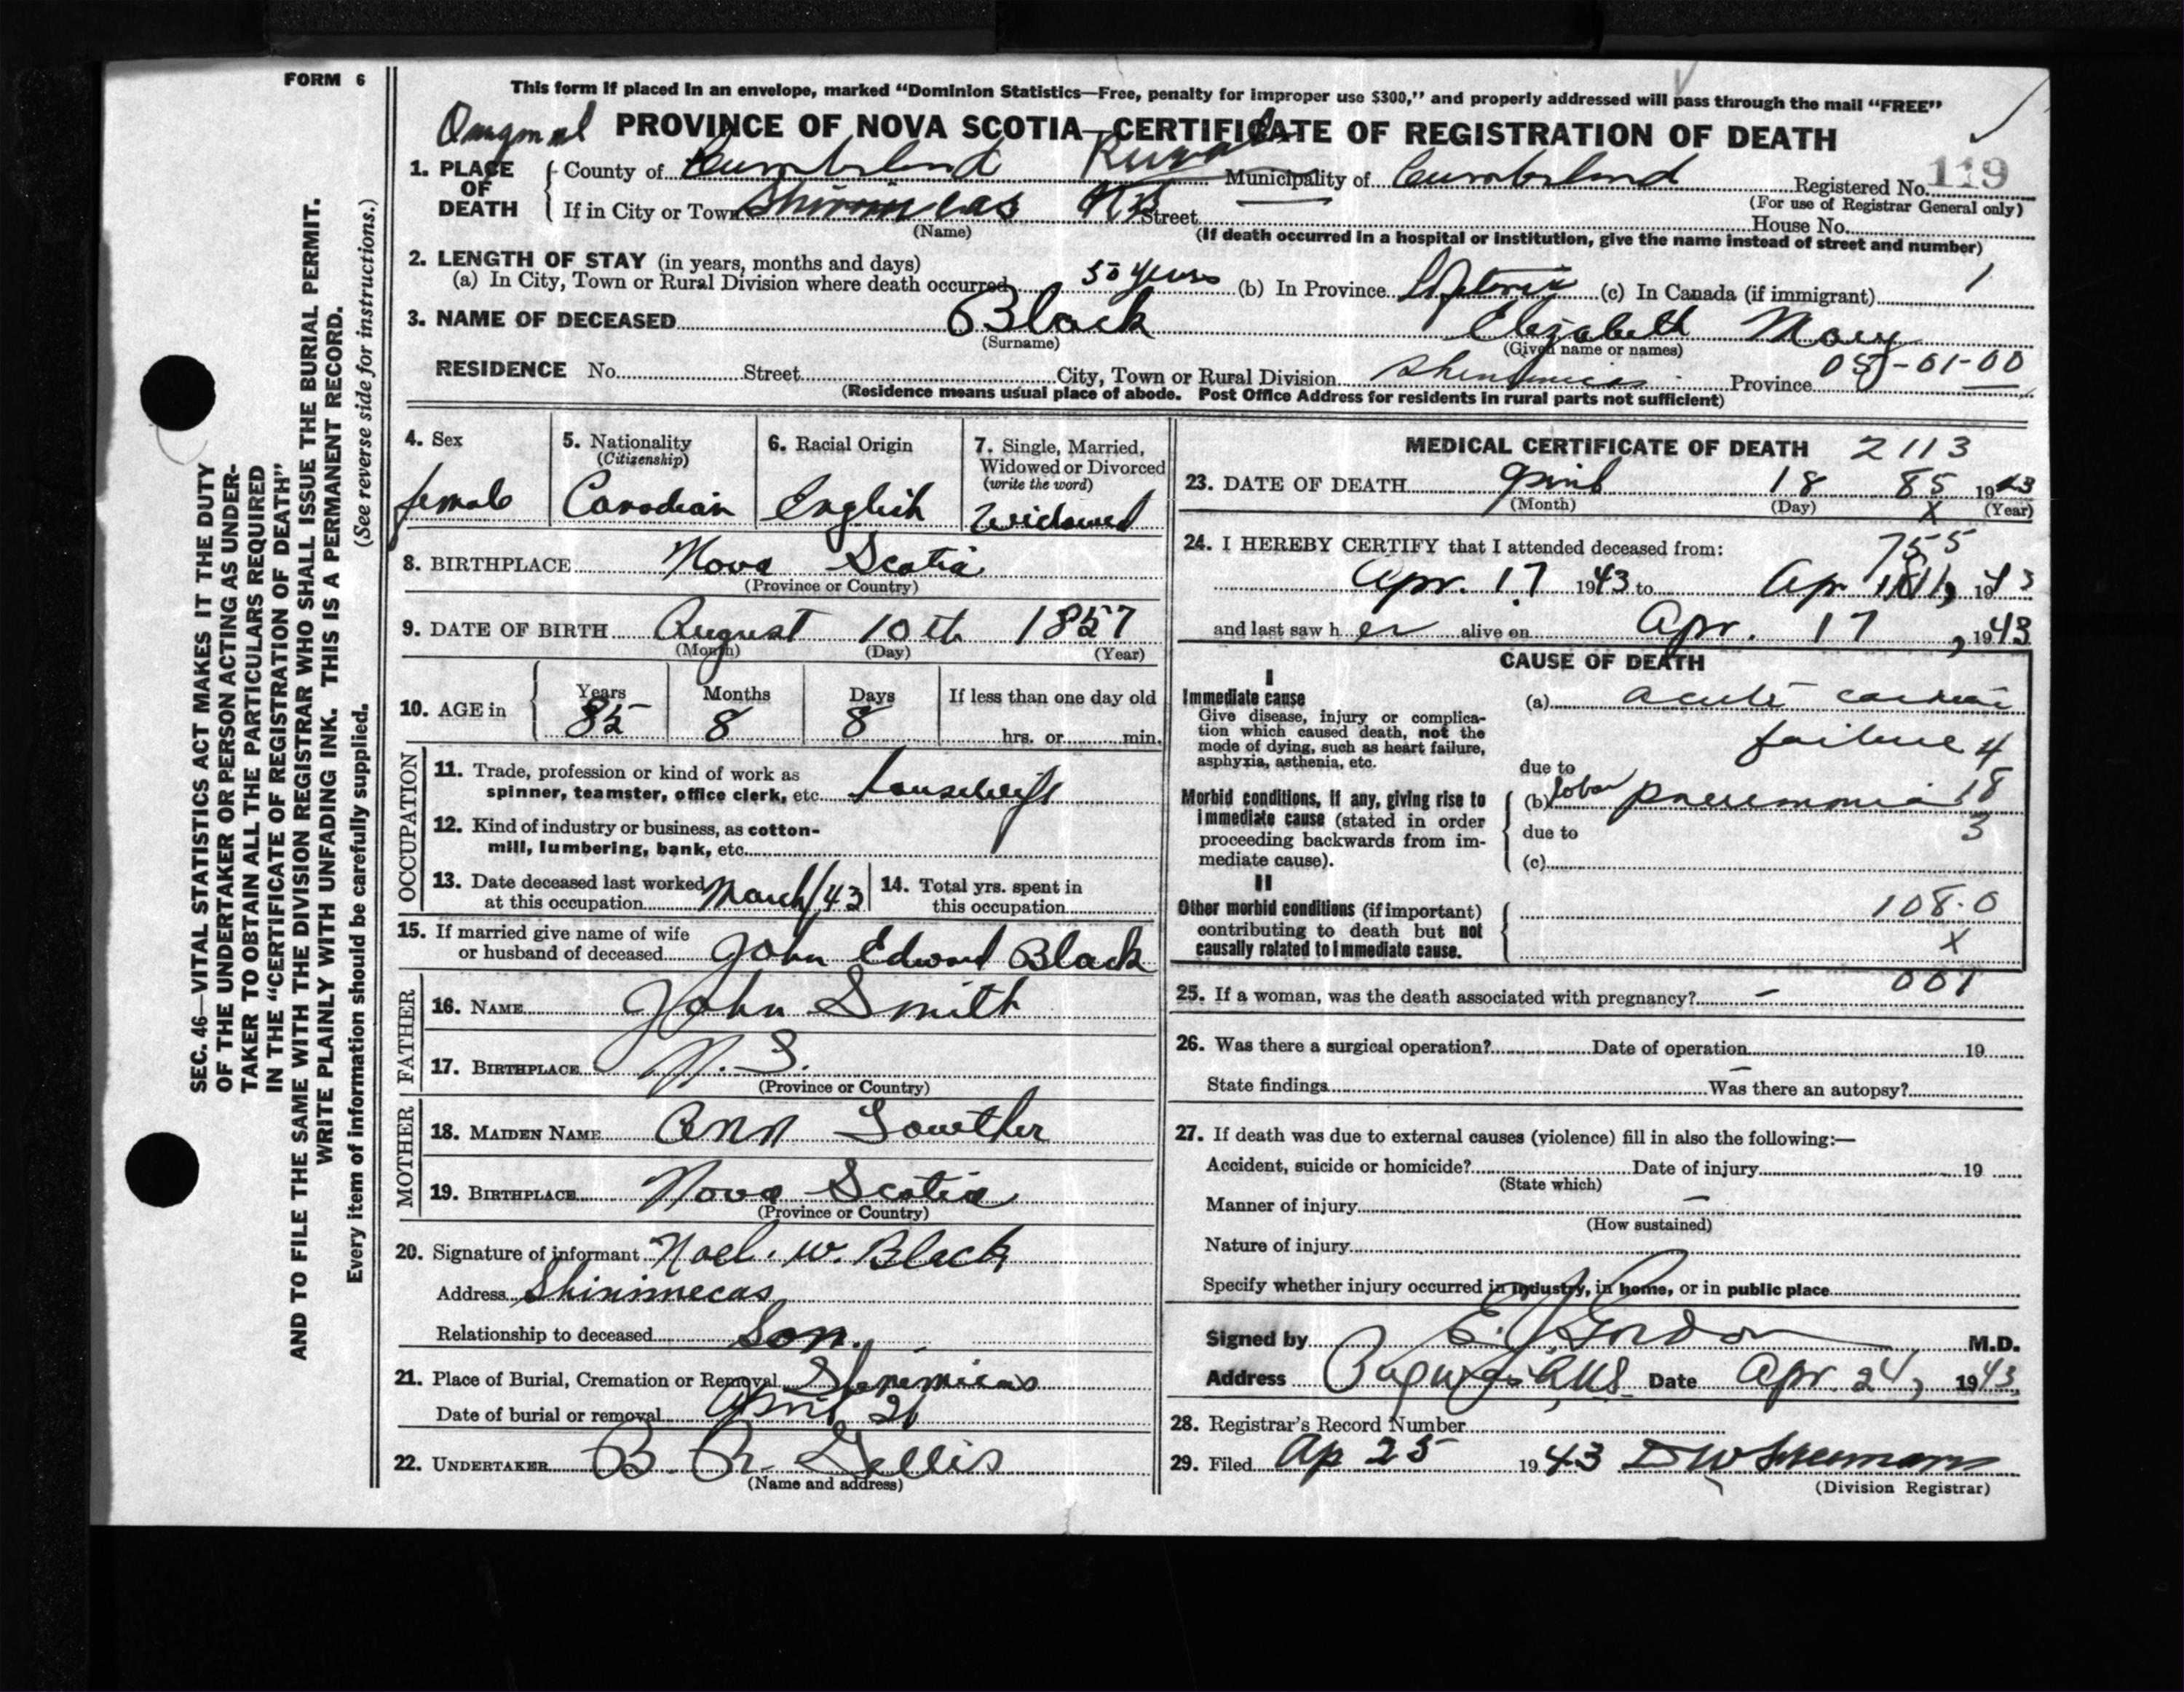 FORM 6
This form if placed in an envelope, marked "Dominion Statistics—Free, penalty for improper use $300," and properly addressed will pass through the mail "FREE"
PROVINCE OF NOVA SCOTIA—CERTIFICATE OF REGISTRATION OF DEATH
1. PLACE OF DEATH
County of Cumberland Rural Municipality of Cumberland Registered No. 119
(For use of Registrar General only)
If in City or Town Street House No.
(Name) (If death occurred in a hospital or institution, give the name instead of street and number)
2. LENGTH OF STAY (in years, months and days)
(a) In City, Town or Rural Division where death occurred 50 years (b) In Province Lifetime (c) In Canada (if immigrant)
3. NAME OF DECEASED Black Elizabeth Mary
(Surname) (Given name or names)
RESIDENCE No. Street City, Town or Rural Division Province 05-01-00
(Residence means usual place of abode. Post Office Address for residents in rural parts not sufficient)
4. Sex
female
5. Nationality
(Citizenship)
Canadian
6. Racial Origin
English
7. Single, Married,
Widowed or Divorced
(write the word)
Widowed
8. BIRTHPLACE Nova Scotia
(Province or Country)
9. DATE OF BIRTH August 10th 1857
(Month) (Day) (Year)
10. AGE in Years Months Days If less than one day old
85 8 8 hrs. or min.
OCCUPATION
11. Trade, profession or kind of work as
spinner, teamster, office clerk, etc. housewife
12. Kind of industry or business, as cotton-
mill, lumbering, bank, etc.
13. Date deceased last worked
at this occupation March/43
14. Total yrs. spent in
this occupation
15. If married give name of wife
or husband of deceased John Edward Black
FATHER
16. NAME John Smith
17. BIRTHPLACE N. S.
(Province or Country)
MOTHER
18. MAIDEN NAME Ann Lowther
19. BIRTHPLACE Nova Scotia
(Province or Country)
20. Signature of informant Noel. W. Black
Address Shinimecas
Relationship to deceased Son.
21. Place of Burial, Cremation or Removal
Date of burial or removal April 21
22. UNDERTAKER
(Name and address)
MEDICAL CERTIFICATE OF DEATH 2113
23. DATE OF DEATH April 18 85 1943
(Month) (Day) X (Year)
24. I HEREBY CERTIFY that I attended deceased from: 755
Apr. 17 1943 to Apr 1943
and last saw her alive on Apr. 17, 1943
CAUSE OF DEATH
I
Immediate cause
Give disease, injury or complica-
tion which caused death, not the
mode of dying, such as heart failure,
asphyxia, asthenia, etc.
(a) acute cardiac
failure 4
due to
Morbid conditions, if any, giving rise to
immediate cause (stated in order
proceeding backwards from im-
mediate cause).
(b) lobar pneumonia 18
due to 3
(c)
II
Other morbid conditions (if important)
contributing to death but not
causally related to immediate cause.
108.0
X
001
25. If a woman, was the death associated with pregnancy? –
26. Was there a surgical operation? Date of operation 19
State findings Was there an autopsy?
27. If death was due to external causes (violence) fill in also the following:—
Accident, suicide or homicide? Date of injury 19
(State which)
Manner of injury
(How sustained)
Nature of injury
Specify whether injury occurred in industry, in home, or in public place
Signed by Gordon M.D.
Address Date Apr. 24, 1943
28. Registrar's Record Number
29. Filed Ap 25 1943
(Division Registrar)
SEC. 46—VITAL STATISTICS ACT MAKES IT THE DUTY
OF THE UNDERTAKER OR PERSON ACTING AS UNDER-
TAKER TO OBTAIN ALL THE PARTICULARS REQUIRED
IN THE "CERTIFICATE OF REGISTRATION OF DEATH"
AND TO FILE THE SAME WITH THE DIVISION REGISTRAR WHO SHALL ISSUE THE BURIAL PERMIT.
WRITE PLAINLY WITH UNFADING INK. THIS IS A PERMANENT RECORD.
Every item of information should be carefully supplied. (See reverse side for instructions.)